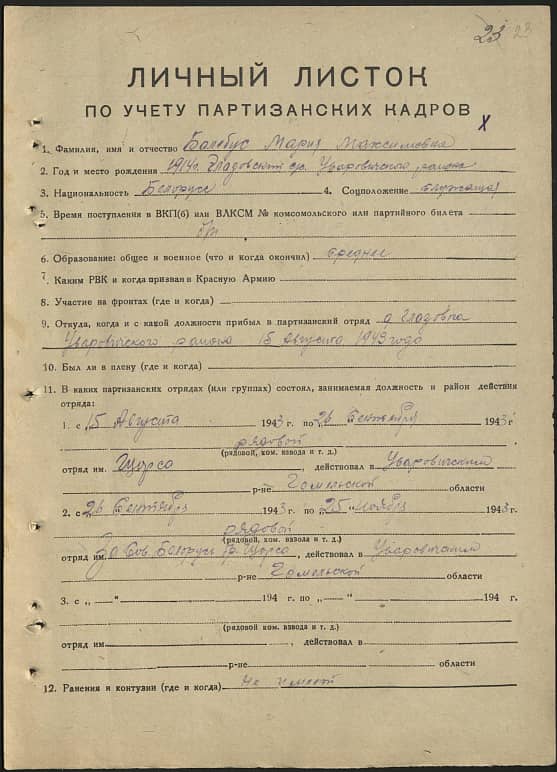 23 23
ЛИЧНЫЙ ЛИСТОК
ПО УЧЕТУ ПАРТИЗАНСКИХ КАДРОВ
х
1. Фамилия, имя и отчество Мария Максимовна
2. Год и место рождения 1914 г. Уваровичского района
3. Национальность Белорус 4. Соцположение служащая
5. Время поступления в ВКП(б) или ВЛКСМ № комсомольского или партийного билета
б/п
6. Образование: общее и военное (что и когда окончил) среднее
7. Каким РВК и когда призван в Красную Армию
8. Участие на фронтах (где и когда)
9. Откуда, когда и с какой должности прибыл в партизанский отряд
Уваровичского района 15 Августа 1943 года
10. Был ли в плену (где и когда)
11. В каких партизанских отрядах (или группах) состоял, занимаемая должность и район действия
отряда:
1. с 15 Августа 1943 г. по 26 Сентября 1943 г
рядовой
(рядовой, ком. взвода и т. д.)
отряд им. Щорса, действовал в Уваровичский
р-не Гомельской области
2. с 26 Сентября 1943 г. по „25 ноября 1943 г.
рядовой
(рядовой, ком. взвода и т. д.)
отряд им. За Сов. Белорусь Щорса, действовал в Уваровичский
р-не Гомельской области
3. с „ — “ 194 г. по „ — “ 194 г.
(рядовой ком. взвода и т. д.)
отряд им. , действовал в
р-не области
12. Ранения и контузии (где и когда) не имеет